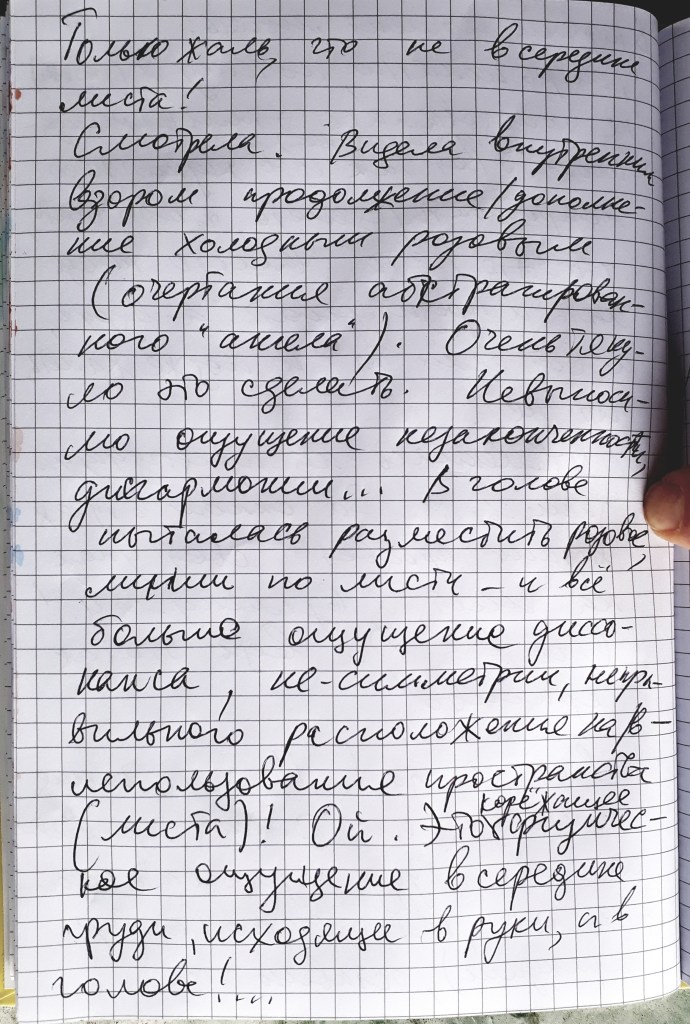 Только жаль, что не в середине
листа!
Смотрела. Видела внутренним
взором продолжение/дополне-
ние холодным розовым
(очертания абстрагирован-
ного "ангела"). Очень тяну-
ло это сделать. Невыноси-
мо ощущение незаконченности,
дисгармонии... В голове
пыталась разместить розовые
линии по листу – и всё
больше ощущение диссо-
нанса, не-симметрии, непра-
вильного расположения на/в –
использования пространства
(листа)! Ой. Это корёжащее физичес-
кое ощущение в середине
груди, исходящее в руки, и в
голове!...